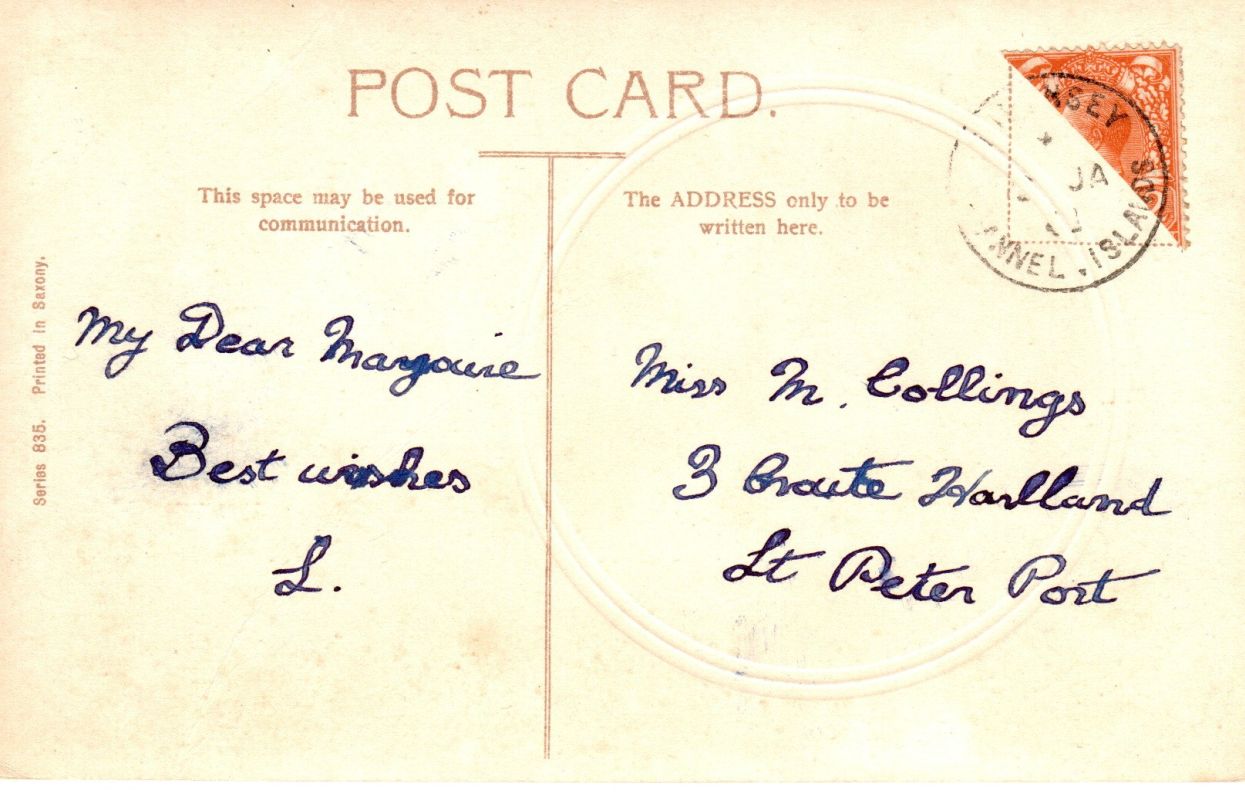 POST CARD.
This space may be used for
communication.
The ADDRESS only to be
written here.
Series 835. Printed in Saxony.
My Dear
Best wishes
L.
Miss M. Collings
3 Croute Havilland
St Peter Port
JA
ISLANDS